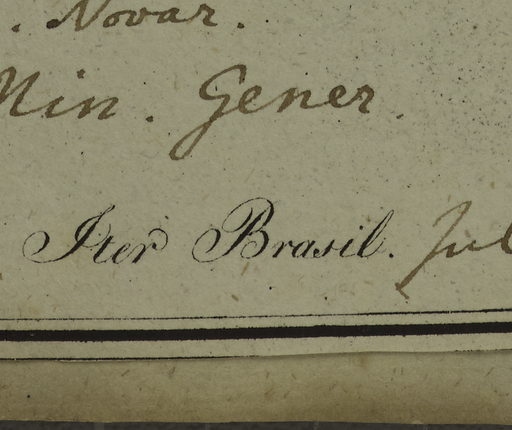 . Novar.
Min. Gener.
Iter Brasil. Jul